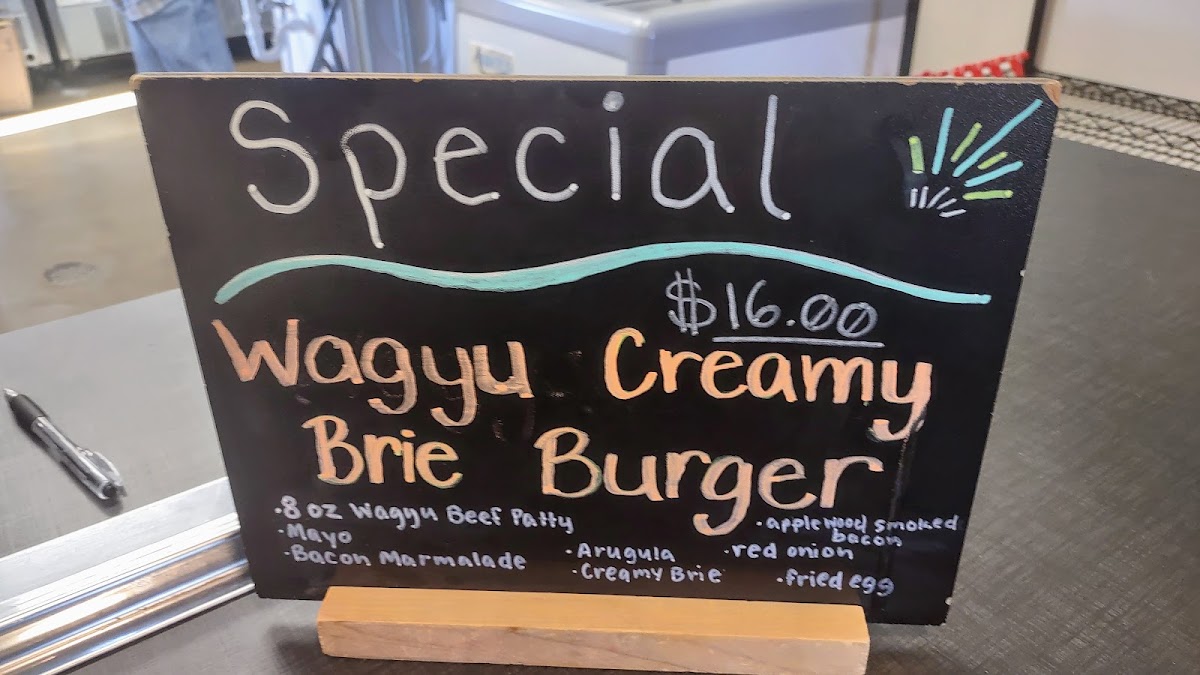 Special
$16.00
Wagyu Creamy
Brie Burger
·8 oz Wagyu Beef Patty
·Mayo
·Bacon Marmalade
·Arugula
·Creamy Brie
·applewood smoked
bacon
·red onion
·fried egg